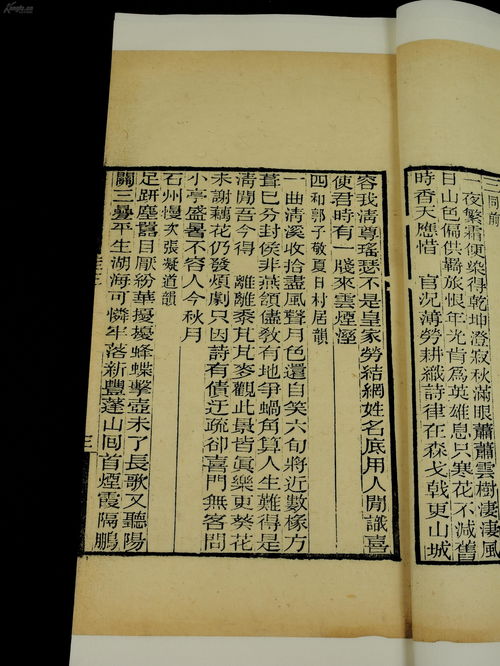 三 同前
一夜繁霜便染得乾坤澄寂秋滿眼蕭蕭雲樹淒淒風
日山色偏供羈旅恨年光肯為英雄息只寒花不減舊
時香天應惜　官況薄勞耕織詩律在森戈戟更山城
容我清尊瑤瑟不是皇家勞結網姓名底用人閒識喜
使君時有一牋來雲煙溼
四和郭子敬夏日村居韻
一曲清溪收拾盡風聲月色還自笑六旬將近數椽方
葺已分封侯非燕頷儘敎有地爭蝸角算人生難得是
清閒吾今得　離離黍芃芃麥觀此景皆眞樂更葵花
未謝藕花仍發煩劇只因詩有債迂疏卻喜門無客問
小亭盛暑不容人今秋月
石州慢 次張凝道韻
足趼塵囂目厭紛華擾擾蜂蝶擊壺未了長歌又聽陽
關三疊平生湖海可憐牢落新豐蓬山回首煙霞隔鵬
三
Kongfz.cn